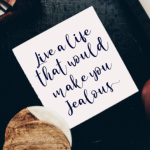 live a life
that would
make you
Jealous